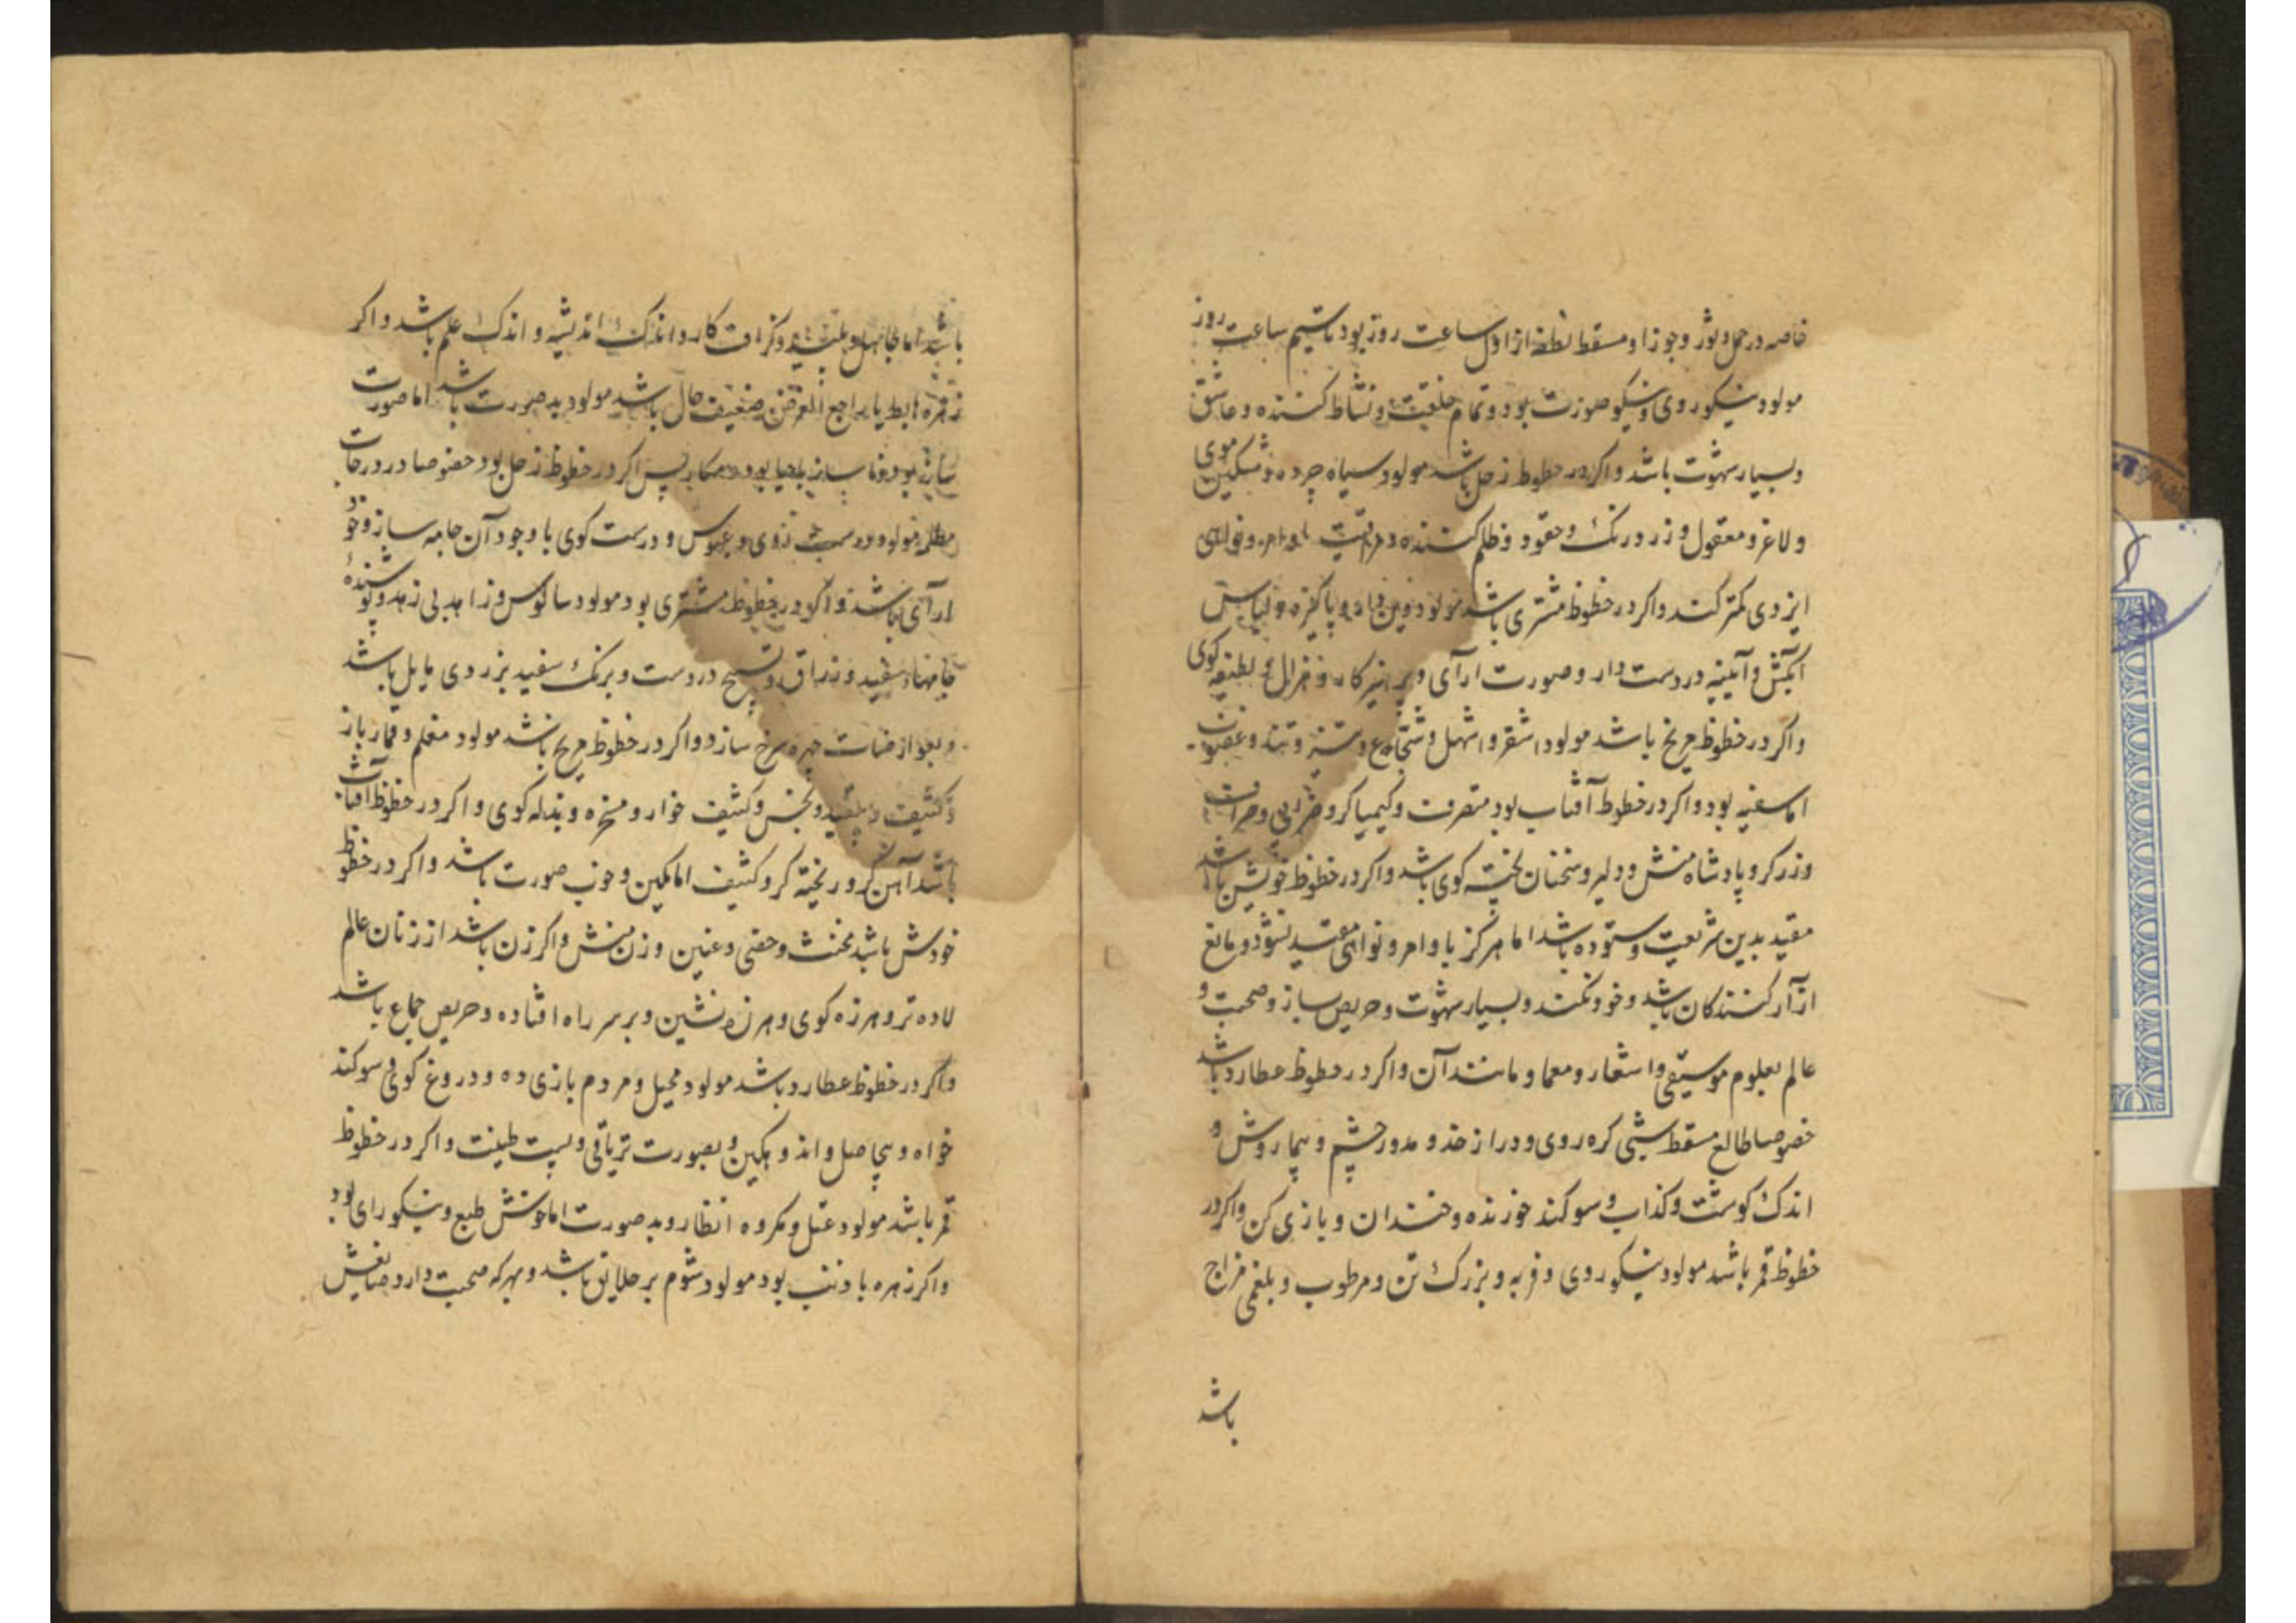 خاصه در حمل و ثور و جوزا و مسقط نطفه از اول ساعت روز بود تا سیم ساعت روز
مولود نیکوروی و نیکو صورت بود و تمام خلقت و نشاط کننده و عاشق
و بسیار شهوت باشد و اکر در حظوظ زحل باشد مولود سیاه چرده و مشکین موی
و لاغر و معقول و زرد رنک و حقود و ظلم کننده و
ایزدی کمتر کند و اکر در حظوظ مشتری باشد مولود و پاکیزه و لباس
و آئینه در دست دار و صورت ارآی و پرهیز کار و غزال و لطیفه کوی
و اکر در حظوظ مریخ باشد مولود اشقر و اشهل و شجاع و ستیز و تند و غضوب
اما سفیه بود و اکر در حظوظ آفتاب بود متصرف و کیمیا کر و ضرابی و صراف
و زرکر و پادشاه منش و دلیر و سخنان پخته کوی باشد و اکر در حظوظ خویش باشد
مقید بدین شریعت و ستوده باشد اما هرکز باوامر و نواهی مقید نشود و مانع
ازآر کنندکان باشد و خود نکند و بسیار شهوت و حریص ساز و صحبت و
عالم بعلوم موسیقی و اشعار و معما و مانند آن و اکر در حظوظ عطارد باشد
خصوصا طالع مسقط کره روی و دراز خد و مدور چشم و بیمار وش و
اندک کوشت و کذاب و سوکند خورنده و خندان و بازی کن و اکر در
حظوظ قمر باشد مولود نیکوروی و فربه و بزرک تن و مرطوب و بلغمی مزاج
باشد
باشد اما جاهل و پلید و کزاف کار و اندک اندیشه و اندک علم باشد و اکر
زهره هابط یا راجع المعرض ضعیف حال باشد مولود بد صورت باشد اما صورت
ساز بود و بیحیا بود و مکار پس اکر در حظوظ زحل بود خصوصا در درجات
مظلمه مولود درشت روی و عبوس و درست کوی با وجود آن جامه ساز و خو
ارآی باشد و اکر در حظوظ مشتری بود مولود سالوس و زاهد بی زهد و پوشنده
جامهاء سفید و زراق و تسبیح در دست و برنک سفید بزردی مایل باشد
چهره سرخ سازد و اکر در حظوظ مریخ باشد مولود مغلم و قمار باز
و کثیف و پلید و نجس و کثیف خوار و مسخره و بذله کوی و اکر در حظوظ آفتاب
باشد آهن کر و ریخته کر و کثیف اما مکین و خوب صورت باشد و اکر در حظوظ
خودش باشد مخنث و خصی و عنین و زن منش و اکر زن باشد از زنان عالم
لاده تر و هرزه کوی و هرزه نشین و بر سر راه افتاده و حریص جماع باشد
و اکر در حظوظ عطارد باشد مولود محیل و مردم بازی ده و دروغ کوی و سوکند
خواه و بیحاصل و اندوهکین و بصورت تریاقی و پست طینت و اکر در حظوظ
قمر باشد مولود و مکروه انظار و بد صورت اما خوش طبع و نیکو رای بود
و اکر زهره با ذنب بود مولود شوم بر خلایق باشد و بهرکه صحبت دارد ضایعش